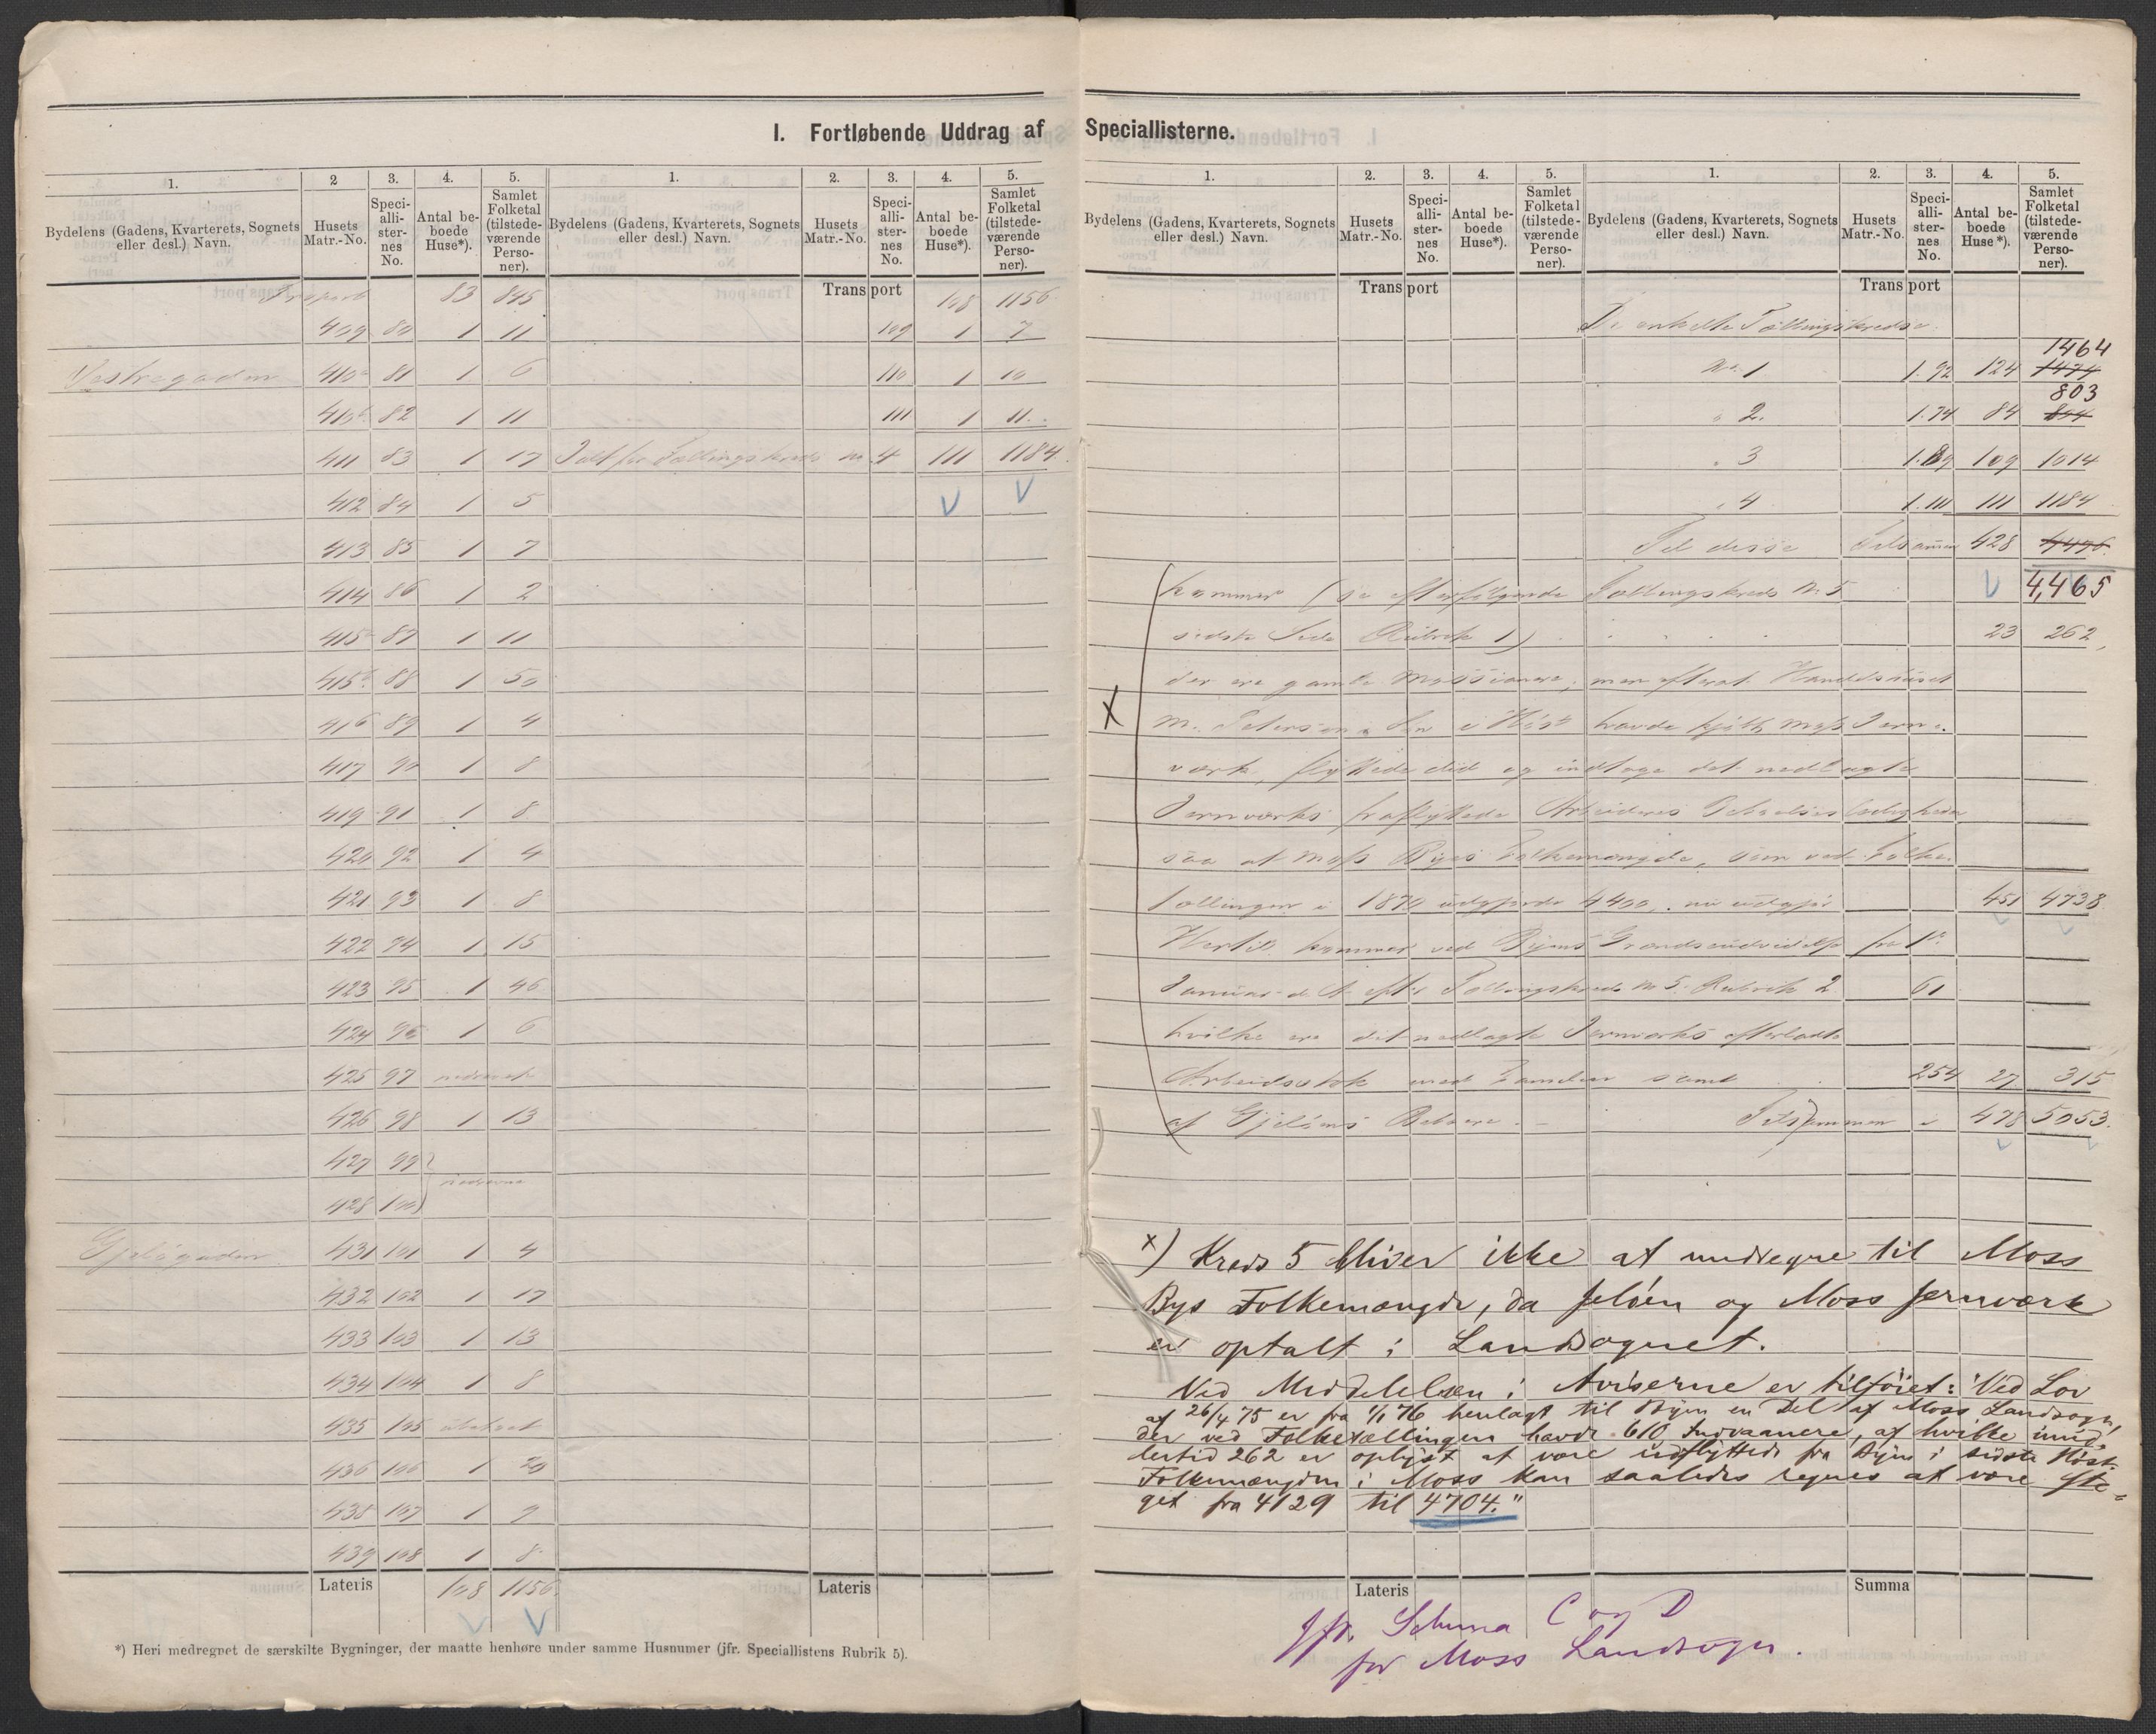 I. Fortløbende Uddrag af Speciallisterne.
1. 2 3. 4. 5. 1. 2. 3. 4. 5.
Bydelens (Gadens, Kvarterets, Sognets eller desl.) Navn. Husets Matr.-No. Speci-alli-ster-nes No. Antal be-boede Huse*). Samlet Folketal (tilstede-værende Perso-ner).
Bydelens (Gadens, Kvarterets, Sognets eller desl.) Navn. Husets Matr.-No. Speci-alli-ster-nes No. Antal be-boede Huse*). Samlet Folketal (tilstede-værende Perso-ner).
Trsport 83 845
409 80 1 11
Vestregaden 410a 81 1 6
410b 82 1 11
411 83 1 17
412 84 1 5
413 85 1 7
414 86 1 2
415a 87 1 11
415b 88 1 50
416 89 1 4
417 90 1 8
419 91 1 8
420 92 1 4
421 93 1 8
422 94 1 15
423 95 1 46
424 96 1 6
425 97
426 98 1 13
427 99
428 100
431 101 1 4
432 102 1 17
433 103 1 13
434 104 1 8
435 105 ubeboet
436 106 1 20
438 107 1 9
439 108 1 8
Lateris 108 1156
Transport 108 1156
109 1 7
110 1 10
111 1 11
Ialt for Tællingskreds No 4 111 1184
V V
Lateris
*) Heri medregnet de særskilte Bygninger, der maatte henhøre under samme Husnumer (jfr. Speciallistens Rubrik 5).
1. 2. 3. 4. 5. 1. 2. 3. 4. 5.
Bydelens (Gadens, Kvarterets, Sognets eller desl.) Navn. Husets Matr.-No. Speci-alli-ster-nes No. Antal be-boede Huse*). Samlet Folketal (tilstede-værende Perso-ner).
Bydelens (Gadens, Kvarterets, Sognets eller desl.) Navn. Husets Matr.-No. Speci-alli-ster-nes No. Antal be-boede Huse*). Samlet Folketal (tilstede-værende Perso-ner).
Transport Transport
De enkelte Tællingskredse.
1464
No 1 1.92 124 1474
803
" 2. 1.74 84 804
" 3 1.89 109 1014
" 4 1.111 111 1184
Til disse Tilsamen 428 4476
kommer (se efterfølgende Tællingskreds No 5 4,465
sidste Side Rubrik 1) 23 262
der ere gamle Mossianere, men efterat Handelshuset
M. Petersen & Søn i Høst havde kjøbt Moss Jern-
værk, flyttede did og indtoge det nedlagte
Jernværks fraflyttede Arbeideres Beboelsesleiligheder
saa at Moss Byes Folkemængde, som ved Folke-
tællingen i 1870 udgjorde 4400, nu udgjør 451 4738
Hertil kommer ved Byens Grændseudvidelse fra 1ste
Januar d. A. efter Tællingskreds No 5. Rubrik 2 61
hvilke ere det nedlagte Jernværks efterladte
Arbeidsstok med Familier samt 254 27 315
af Gjeløens Beboere. Tilsammen 478 5053.
x) Kreds 5 bliver ikke at medregne til Moss
Bys Folkemængde, da Jeløen og Moss Jernværk
er optalt i Landsognet.
Ved Meddelelsen i Aviserne er tilføiet: "Ved Lov
af 26/4 75 er fra 1/1 76 henlagt til Byen en Del af Moss Landsogn,
der ved Folketællingen havde 610 Indvaanere, af hvilke imid-
lertid 262 er oplyst at være udflyttede fra Byen i sidste Høst.
Folkemængden i Moss kan saaledes regnes at være ste-
get fra 4129 til 4704."
Lateris Summa
Jfr. Schema C og D
for Moss Landsogn.